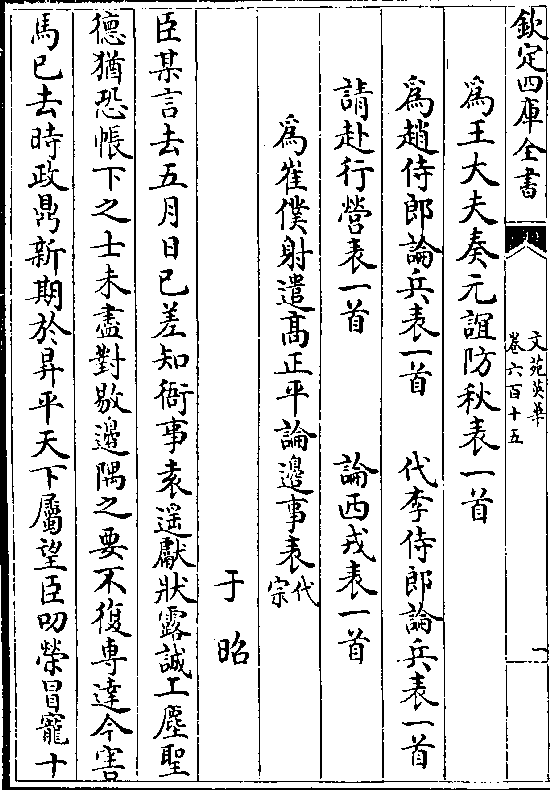 欽定四庫全書
文苑英華
卷六百十五
一
為王大夫奏元誼防秋表一首
為趙侍郎論兵表一首 代李侍郎論兵表一首
請赴行營表一首 論西戎表一首
為崔僕射遣高正平論邊事表代宗
于昭
臣某言去五月日已差知衙事袁遥獻狀露誠上塵聖
德猶恐帳下之士未盡對敭邊隅之要不復專達今害
馬已去時政鼎新期於昇平天下屬望臣叨榮冒寵十